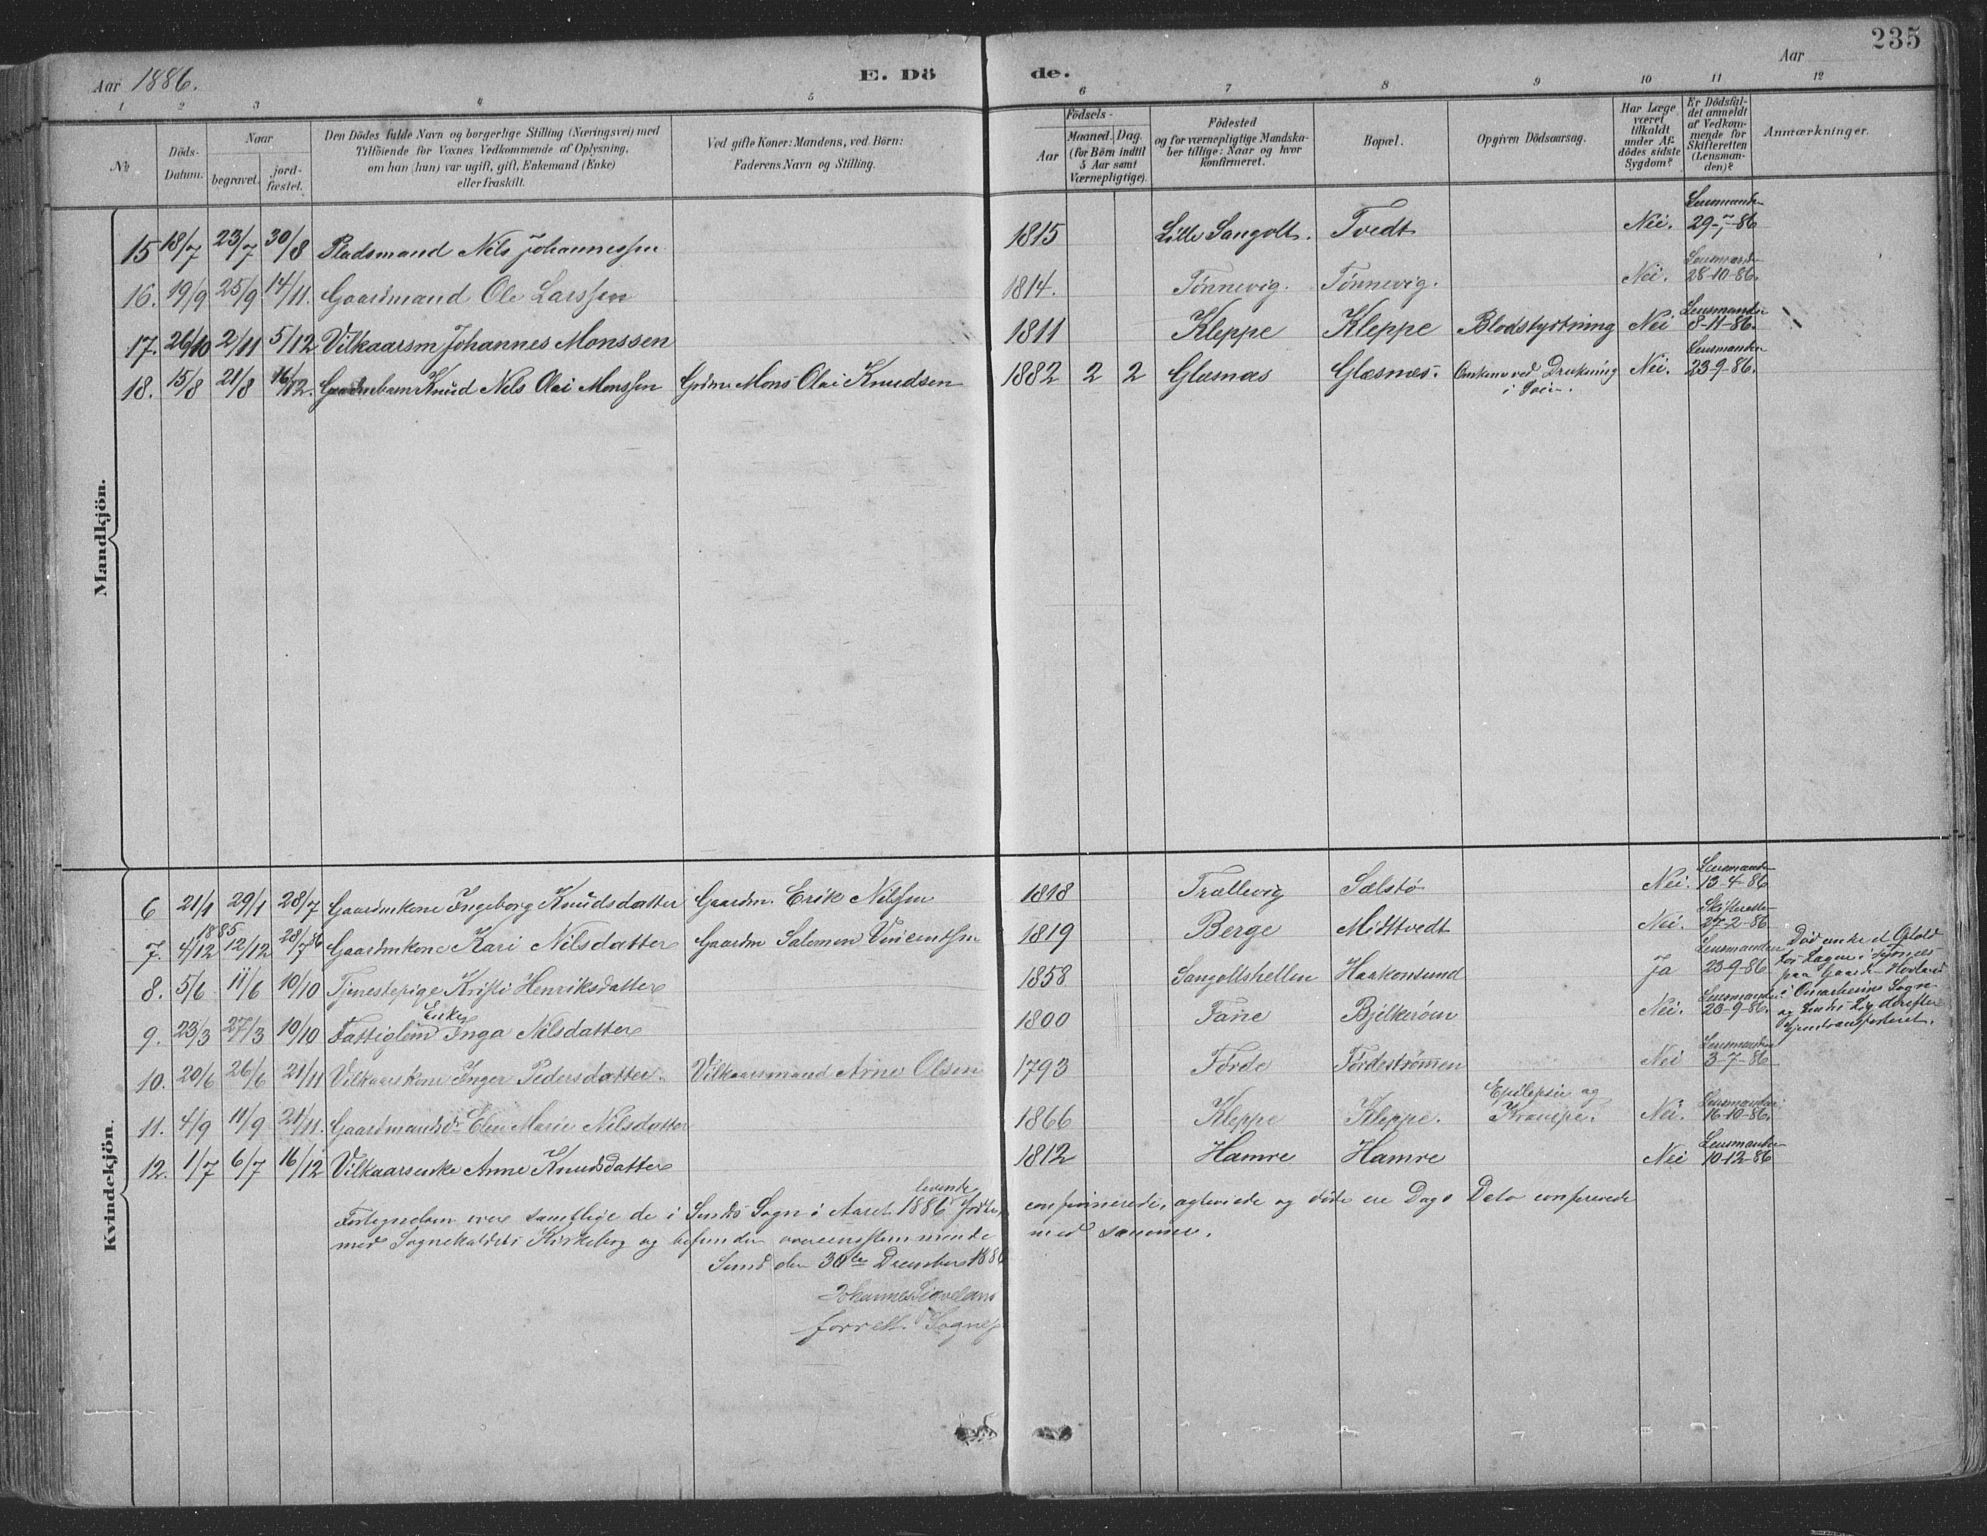 235
Aar 1886.
E. Dö de.
Aar
1 2 3 4 5 6 7 8 9 10 11 12
No
Döds-
Datum.
Naar
begravet.
jord-
fæstet.
Den Dödes fulde Navn og borgerlige Stilling (Næringsvei) med
Tilföiende for Voxnes Vedkommende af Oplysning,
om han (hun) var ugift, gift, Enkemand (Enke)
eller fraskilt.
Ved gifte Koner: Mandens, ved Börn:
Faderens Navn og Stilling.
Födsels-
Aar
Maaned. Dag.
(for Börn indtil
5 Aar samt
Værnepligtige).
Födested
og for værnepligtige Mandska-
ber tillige: Naar og hvor
konfirmeret.
Bopæl.
Opgiven Dödsaarsag.
Har Læge
været
tilkaldt
under Af-
dödes sidste
Sygdom?
Er Dödsfal-
det anmeldt
af Vedkom-
mende for
Skifteretten
(Lensman-
den)?
Anmærkninger.
Mandkjön.
15 18/7 23/7 30/8 Pladsmand Nils Johannessen 1815 Lille Sangolt. Tvedt Nei. Lensmanden 29-7-86
16. 19/9 25/9 14/11. Gaardmand Ole Larssen 1814. Tønnevig. Tønnevig. Nei. Lensmanden 28-10-86.
17. 26/10 2/11 5/12 Vilkaarsm Johannes Monssen 1811 Kleppe Kleppe Blodstyrtning Nei Lensmanden 8-11-86.
18. 15/8 21/8 16/12. Knud Nels Olai Monssen Gaardm Mons Olai Knudsen 1882 2 2 Glæsnæs Glæsnes. Omkom ved Drukning i Søen. Nei. Lensmanden 23-9-86.
Kvindekjön.
6 21/1 29/1 28/7 Gaardmkone Ingeborg Knudsdatter Gaardm. Erik Nilssen 1818 Trællevig Sælstø Nei. Lensmanden 13-4-86
7. 4/12 1885 12/12 28/7 86 Gaardmkone Kari Nilsdatter Gaardm Salomon Vincentsen 1819 Berge Midttvedt Nei. Skifteretten 27-2-86
8. 5/6 11/6 10/10 Tjenestepige Kristi Henriksdatter 1858 Sangoltshellen Haakonsund Ja Lensmanden 23-9-86
9. 23/3 27/3 10/10 Fattiglem Enke Inga Nilsdatter 1800 Fane Bjelkerøen Nei. Lensmanden 20-9-86.
10. 20/6 26/6 21/11 Vilkaarskone Inger Pedersdatter. Vilkaarsmand Arne Olsen 1793 Førde Førdestrømmen Nei Lensmanden 3-7-86
11. 4/9 11/9 21/11. Gaardmandsdr Elen Marie Nilsdatter 1866 Kleppe Kleppe. Epilepsie og Krampe. Nei. Lensmanden 16-10-86.
12. 1/7 6/7 16/12 Vilkaarsenke Anne Knudsdatter 1812 Hamre Hamre Nei Lensmanden 10-12-86
paa Gaard Hovland
Fortegnelsen over samtlige de i Sunds Sogn i Aaret 1886 levende fødte, confirmerede, ægteviede og døde ere Dags Dato confererede
med Sognekaldets Kirkebog og befunden overensstemmende med samme.
Sund den 30te December 1886
Johannes